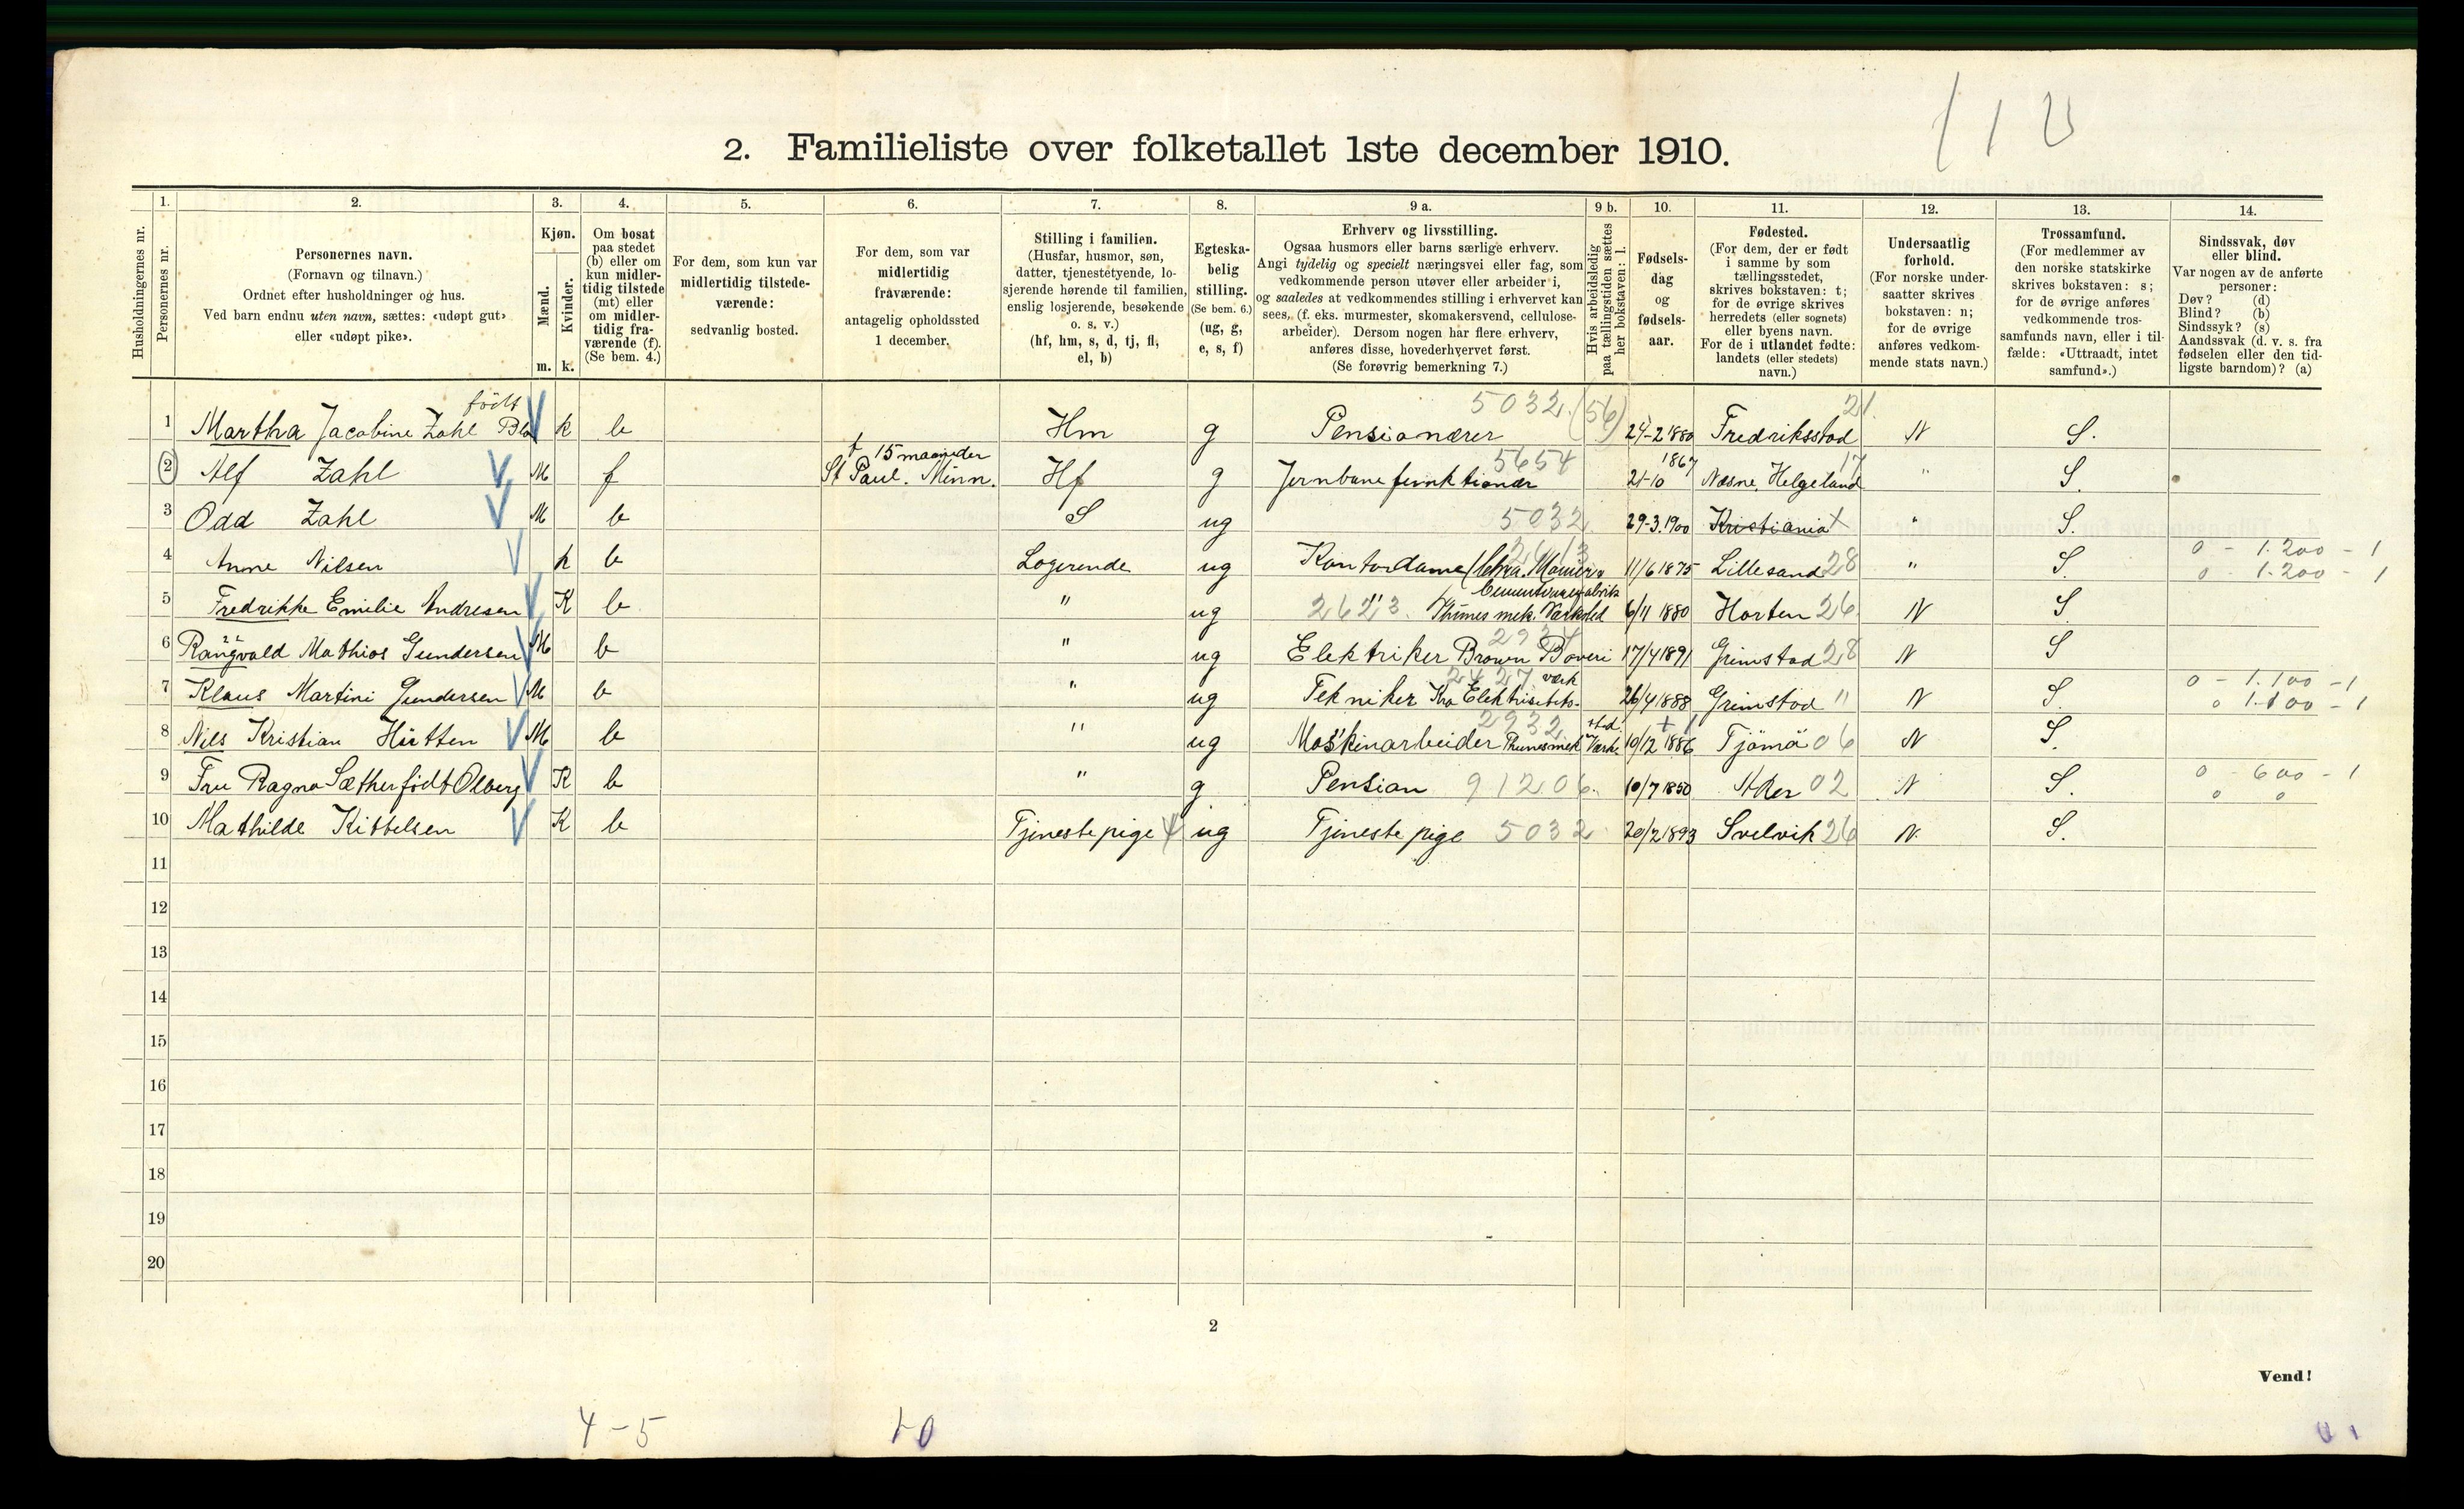 2. Familieliste over folketallet 1ste december 1910.
Husholdningernes nr.
1.
Personernes nr.
2.
Personernes navn.
(Fornavn og tilnavn.)
Ordnet efter husholdninger og hus.
Ved barn endnu uten navn, sættes: «udøpt gut»
eller «udøpt pike».
3.
Kjøn.
Mænd.
Kvinder.
m. k.
4.
Om bosat
paa stedet
(b) eller om
kun midler-
tidig tilstede
(mt) eller
om midler-
tidig fra-
værende (f).
(Se bem. 4.)
5.
For dem, som kun var
midlertidig tilstede-
værende:
sedvanlig bosted.
6.
For dem, som var
midlertidig
fraværende:
antagelig opholdssted
1 december.
7.
Stilling i familien.
(Husfar, husmor, søn,
datter, tjenestetyende, lo-
sjerende hørende til familien,
enslig losjerende, besøkende
o. s. v.)
(hf, hm, s, d, tj, fl,
el, b)
8.
Egteska-
belig
stilling.
(Se bem. 6.)
(ug, g,
e, s, f)
9 a.
Erhverv og livsstilling.
Ogsaa husmors eller barns særlige erhverv.
Angi tydelig og specielt næringsvei eller fag, som
vedkommende person utøver eller arbeider i,
og saaledes at vedkommendes stilling i erhvervet kan
sees, (f. eks. murmester, skomakersvend, cellulose-
arbeider). Dersom nogen har flere erhverv,
anføres disse, hovederhvervet først.
(Se forøvrig bemerkning 7.)
9 b.
Hvis arbeidsledig
paa tællingstiden sættes
her bokstaven: l.
10.
Fødsels-
dag
og
fødsels-
aar.
11.
Fødested.
(For dem, der er født
i samme by som
tællingsstedet,
skrives bokstaven: t;
for de øvrige skrives
herredets (eller sognets)
eller byens navn.
For de i utlandet fødte:
landets (eller stedets)
navn.)
12.
Undersaatlig
forhold.
(For norske under-
saatter skrives
bokstaven: n;
for de øvrige
anføres vedkom-
mende stats navn.)
13.
Trossamfund.
(For medlemmer av
den norske statskirke
skrives bokstaven: s;
for de øvrige anføres
vedkommende tros-
samfunds navn, eller i til-
fælde: «Uttraadt, intet
samfund».)
14.
Sindssvak, døv
eller blind.
Var nogen av de anførte
personer:
Døv? (d)
Blind? (b)
Sindssyk? (s)
Aandssvak (d. v. s. fra
fødselen eller den tid-
ligste barndom)? (a)
født 5032 (56) 21
1 Martha Jacobine Zahl k b Hm g Pensionærer 24-2 1880 Fredriksstad N S.
15 maaneder 5654 1867 17
2 Alf Zahl M f St Paul. Minn. Hf g Jernbanefunktionær 21-10 Næsne, Helgeland " S.
3 Odd Zahl M b S ug 5032 29-3.1900 Kristiania t " S.
0 - 1.200 - 1
4 Anne Nilsen k b Logerende ug Kontordame 11/6 1875 Lillesand 28 " S. 0 - 1.200 - 1
Cementvarefabrik
5 Fredrikke Emilie Andresen K b " ug 2623. " Thunes mek. Værksted 6/11 1880 Horten 26 N S
6 Rangvald Mathios Gundersen M b " ug Elektriker Brown Boveri 17/4 1891 Grimstad 28 N S
2427 værk 0 - 1.100 - 1
7 Klaus Martini Gundersen M b " ug Tekniker Kra Elektricitets- 26/4 1888 Grimstad " N S. 0 1.100 - 1
2932
8 Nils Kristian Hütten M b " ug Maskinarbeider Thunes mek Værk. 10/12 1886 Tjömö 06 N S.
0 - 600 - 1
9 Fru Ragna Sæther født Olberg K b " g Pension 91206. 10/7 1850 02 N S. 0 0
10 Mathilde Kittelsen K b Tjenestepige ug Tjenestepige 5032 20/2 1893 Svelvik 26 N. S.
11
12
13
14
15
16
17
18
19
20
2
Vend!
4-5 10